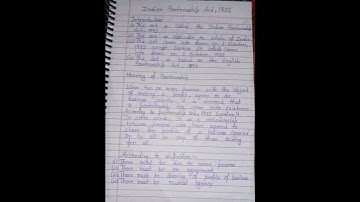 Indian Partnership Act, 1932
Introduction
This act is called the Indian Partnership
Act, 1932
This act is applicable to whole of India
This act came into force on 1 October,
1932 except Section 69 which came
into force on 1 October, 1933
This act is based on the English
Partnership Act, 1890
Meaning of Partnership
When two or more persons with the object
of making a profit, agree to do
business
a partnership
According to partnership act, 1932 Section 4
In other words, is a relationship
between persons who have agreed to
share the profits of a business carried
on by all or any of them acting
for all.
According to definition:-
(i) There must be two or more persons
(ii) There must be an agreement
(iii) There must be sharing of profits of business
(iv) There must be mutual agency